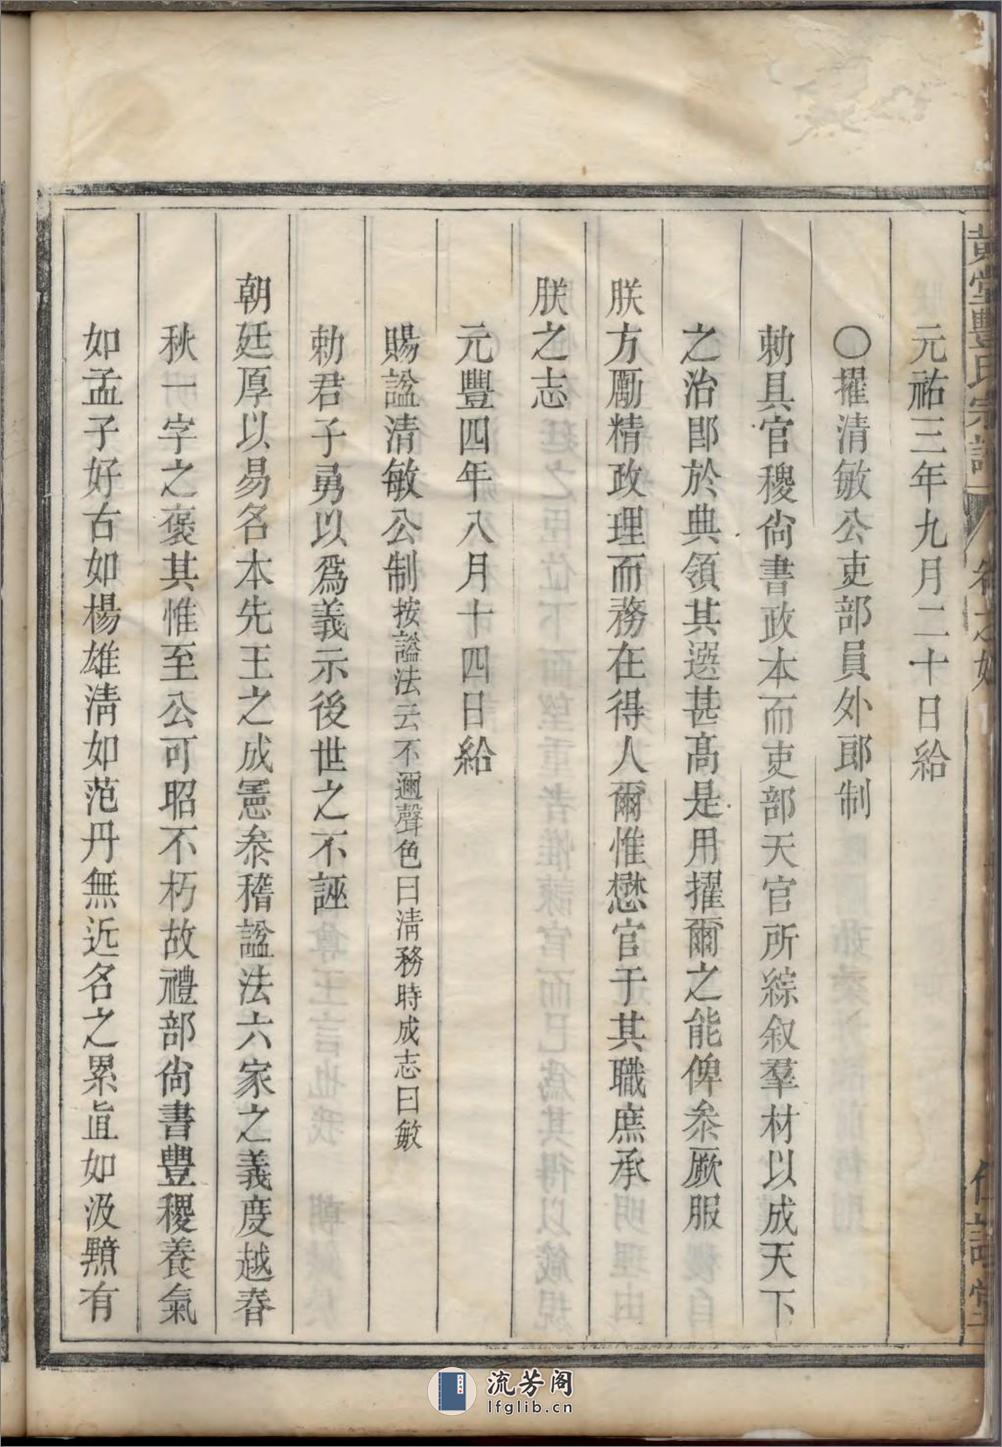 黃堂豐氏宗譜 卷之
元祐三年九月二十日給
〇擢清敏公吏部員外郎制
勅具官稷尙書政本而吏部天官所綜叙羣材以成天下
之治卽於典領其選甚高是用擢爾之能俾叅厥服
朕方勵精政理而務在得人爾惟懋官于其職庶承
朕之志
元豐四年八月十四日給
賜諡清敏公制按諡法云不邇聲色曰淸務時成志曰敏
勅君子勇以爲義示後世之不誣
朝廷厚以易名本先王之成憲叅稽諡法六家之義度越春
秋一字之褒其惟至公可昭不朽故禮部尙書豐稷養氣
如孟子好古如楊雄淸如范丹無近名之累直如汲黯有
流芳阁
lfglib.cn